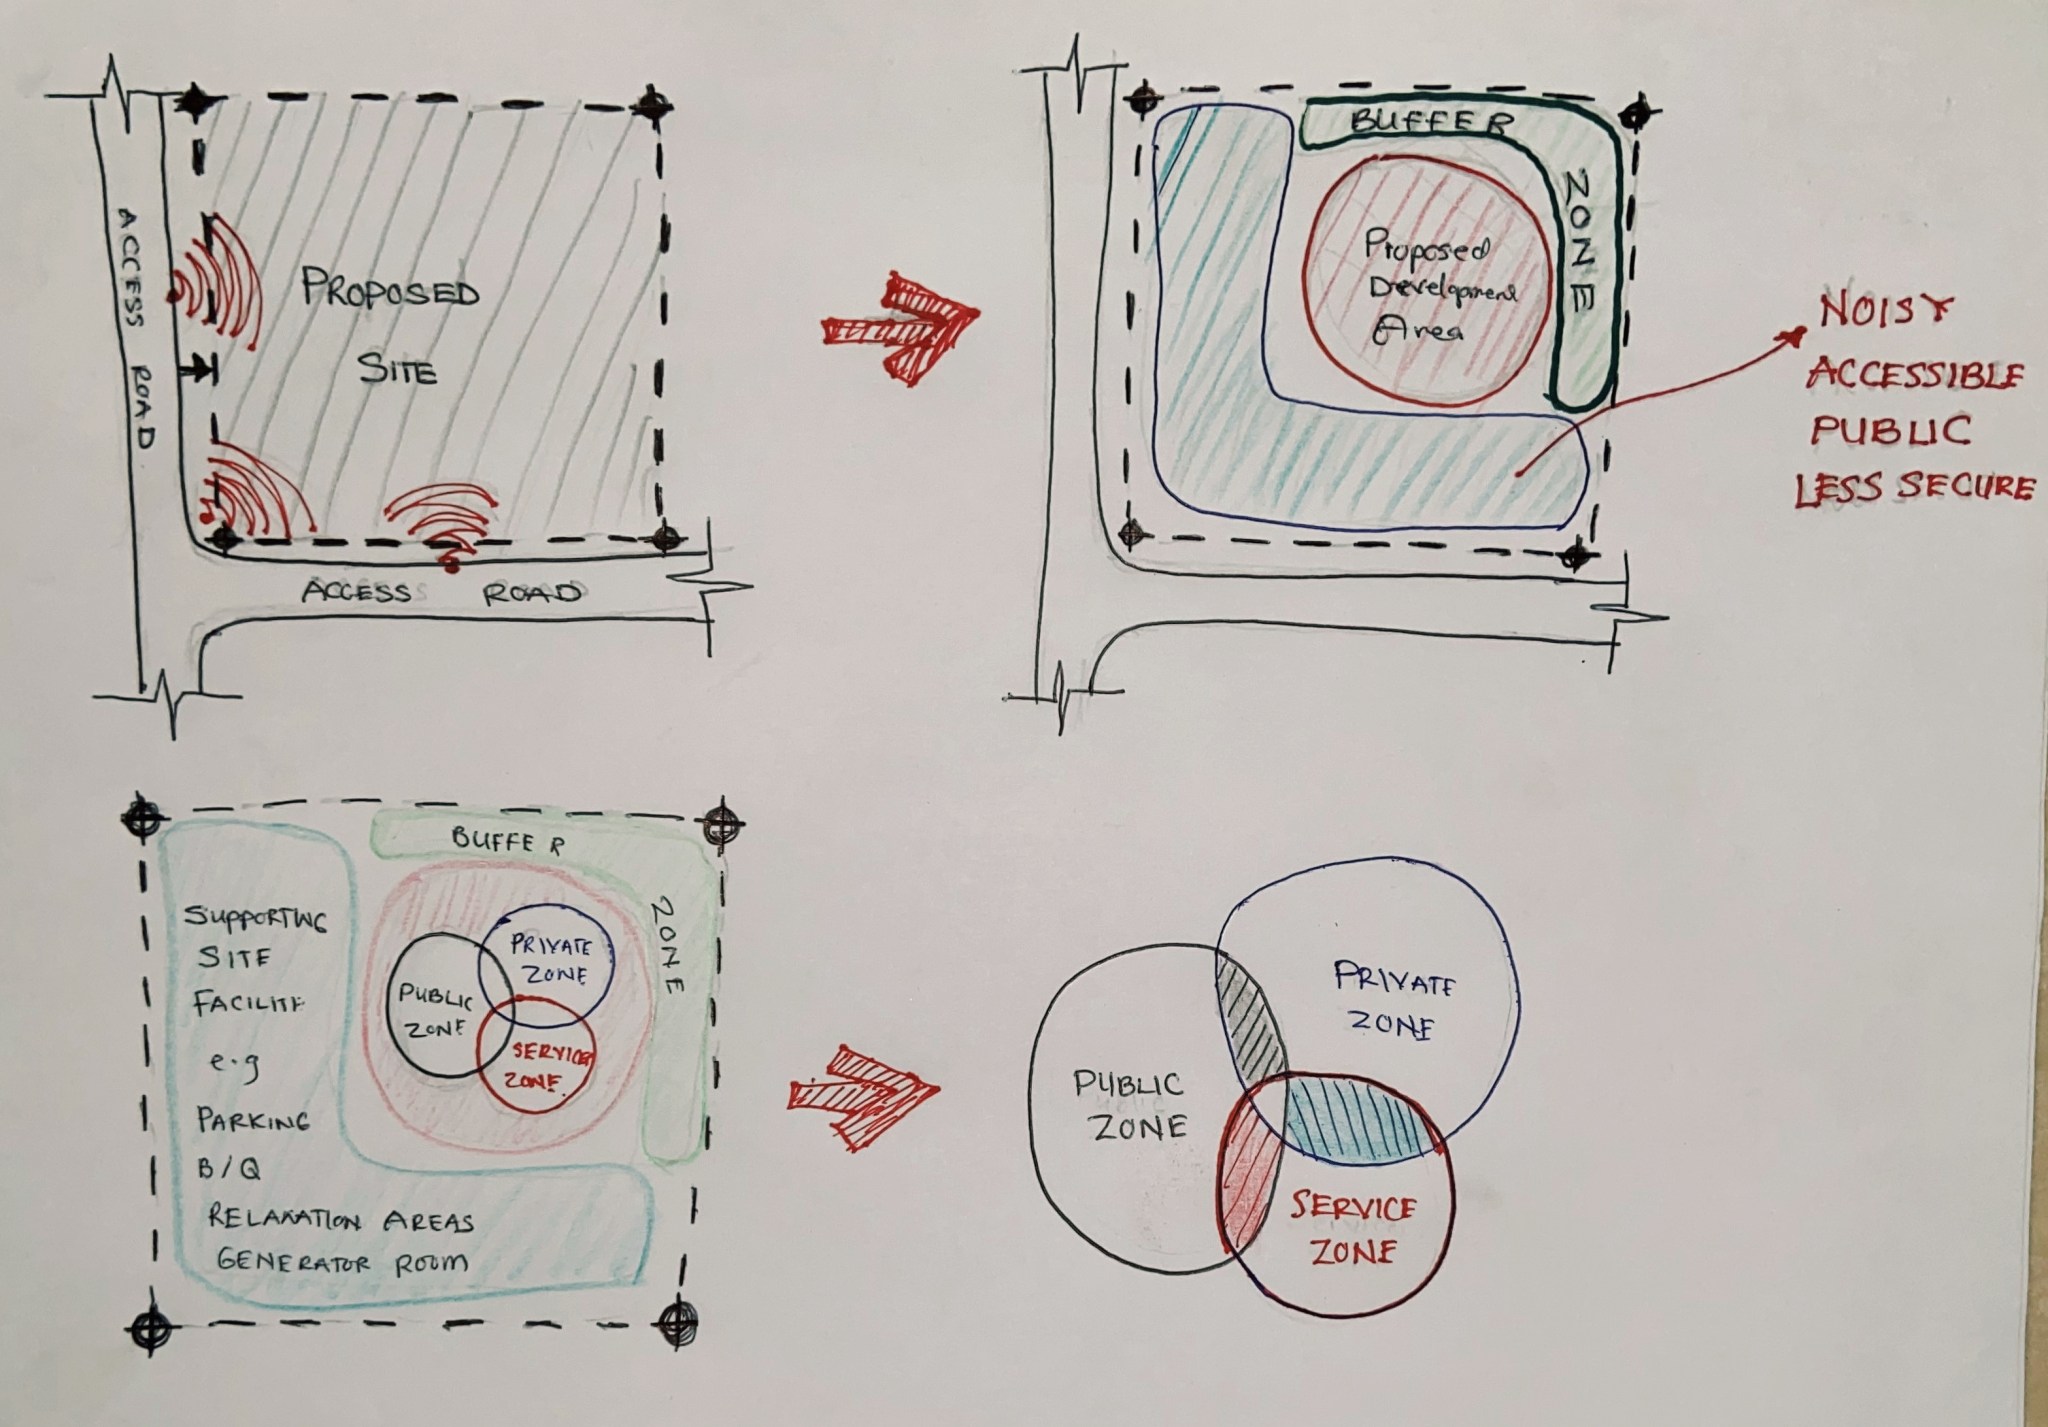 ACCESS ROAD
PROPOSED
SITE
ACCESS ROAD
BUFFER
ZONE
Proposed
Development
Area
NOISY
ACCESSIBLE
PUBLIC
LESS SECURE
BUFFER
ZONE
SUPPORTING
SITE
e.g
PARKING
B/Q
RELAXATION AREAS
GENERATOR ROOM
PUBLIC
ZONE
PRIVATE
ZONE
SERVICE
ZONE
PUBLIC
ZONE
PRIVATE
ZONE
SERVICE
ZONE